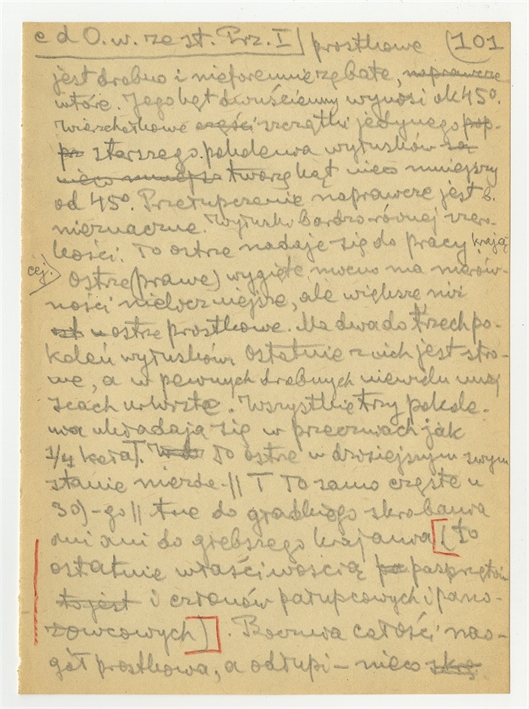 c d O. w. ze st. Prz. I prostkowe (101
jest drobno i nieforemnie zębate, naprawcze
wtóre. Jego kąt dwuścienny wynosi ok 45°.
Wierzchołkowe części szczątki jedynego
starszego pokolenia wyłusków są
nieco mniejsze tworzą kąt nieco mniejszy
od 45°. Przełupczenie naprawcze jest b.
nieznaczne. Wyłuski bardzo równej szero-
kości. To ostrze nadaje się do pracy krają
cej. Ostrze (prawe) wygięte mocno ma nierów-
ności nieliczniejsze, ale większe niż
ostrze prostkowe. Ma dwa do trzech po-
koleń wyłusków. Ostatnie z nich jest stro-
me, a w pewnych drobnych niewielu miej
scach urwiste. Wszystkie trzy pokole-
nia układają się w przecinach jak
1/4 koła I. To ostrze w dzisiejszym swym
stanie nie
30) -go || tne do gładkiego skrobania
ani ani do grubszego krajania [(to
ostatnie właściwością
to jest i członów patupcowych i pano-
zowcowych)]. Bocznia całości nao-
gół prostkowa, a odłupi- nieco